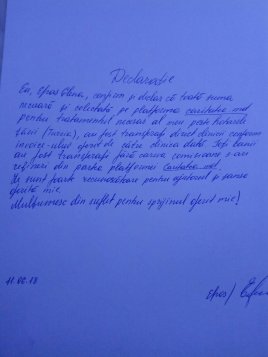 Declarație
Eu, Efros Elena, confirm și declar că toată suma
necesară și colectată pe platforma caritate.md
pentru tratamentul necesar al meu peste hotarele
țării (Turcia), au fost transferați direct clinicii conform
invoice-ului oferit de către clinica dată. Toți banii
au fost transferați fără careva comisioane sau
rețineri din partea platformei Caritate.md.
Vă sunt foarte recunoscătoare pentru ajutorul și șansa
oferită mie.
Mulțumesc din suflet pentru sprijinul oferit mie!
11.02.18
Efros/